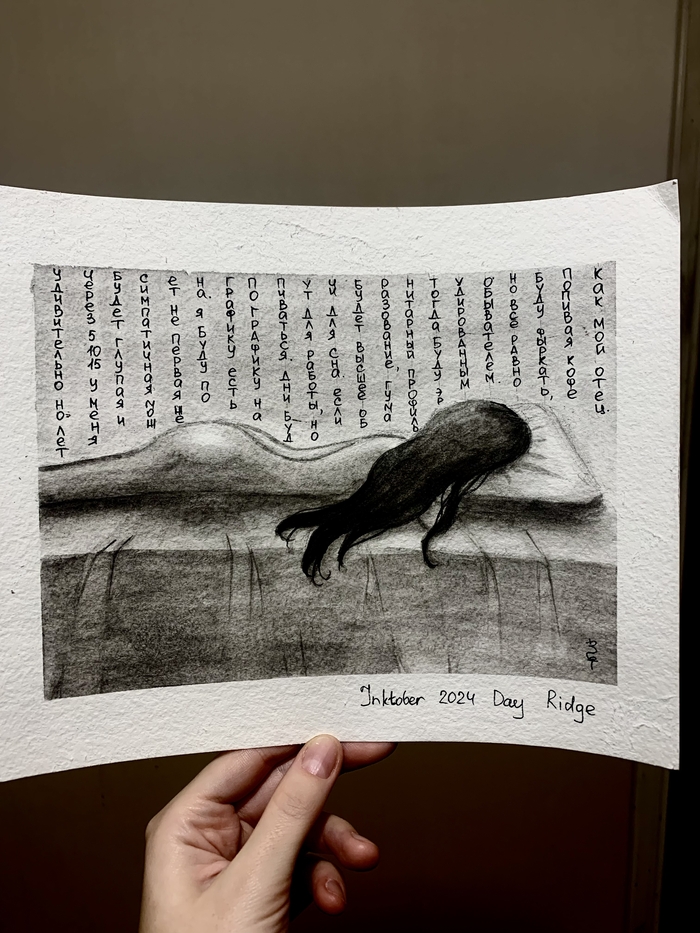 удивительно но лет
через 5 10 15 у меня
будет глупая и
симпатичная мож
ет не первая же
на. я буду по
графику есть
по графику на
пиваться. дни буд
ут для работы, но
чи для сна. если
будет высшее об
разование, гума
нитарный профиль
тогда буду эр
удированным
обывателем.
но все равно
буду фыркать,
попивая кофе
как мой отец.
Inktober 2024 Day Ridge